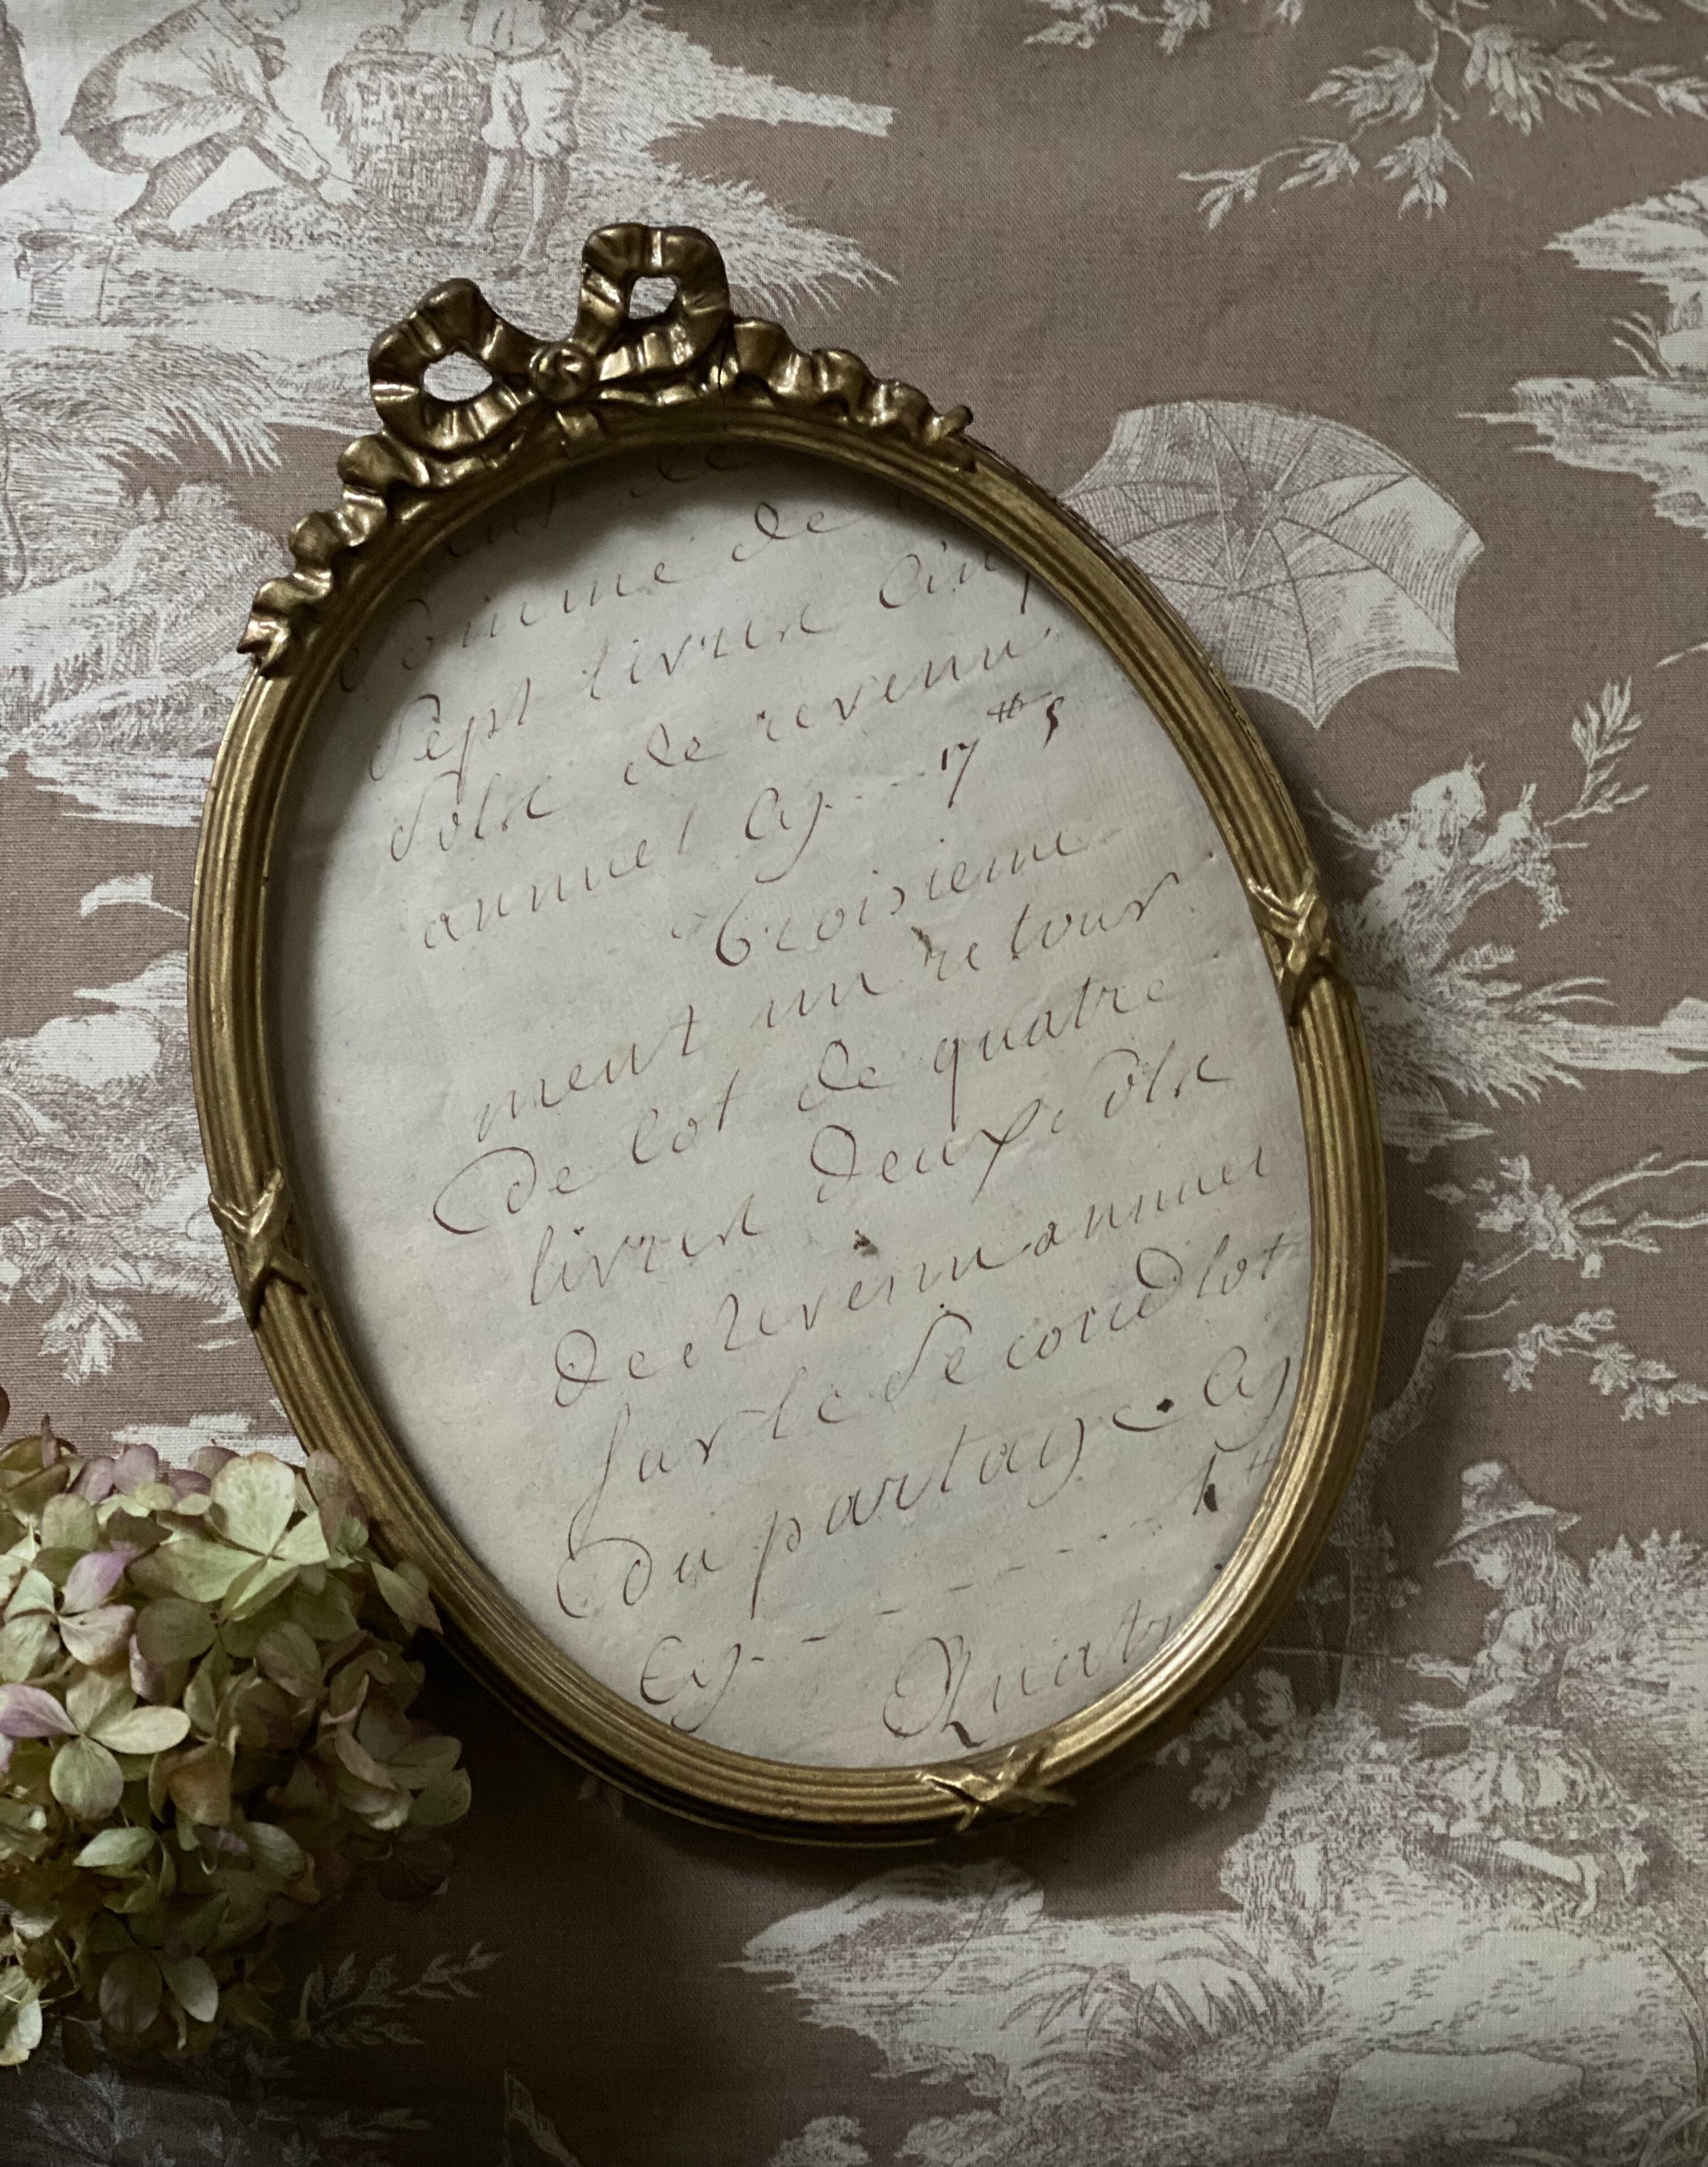 Somme de
Sept livres Cinq
Sols de revenu
annuel Cy 17 ₶ 5
Troisieme
ment un retour
De lot de quatre
livres deux Sols
De Revenu annuel
Sur le Second lot
Du partage Cy
Cy
Quatr